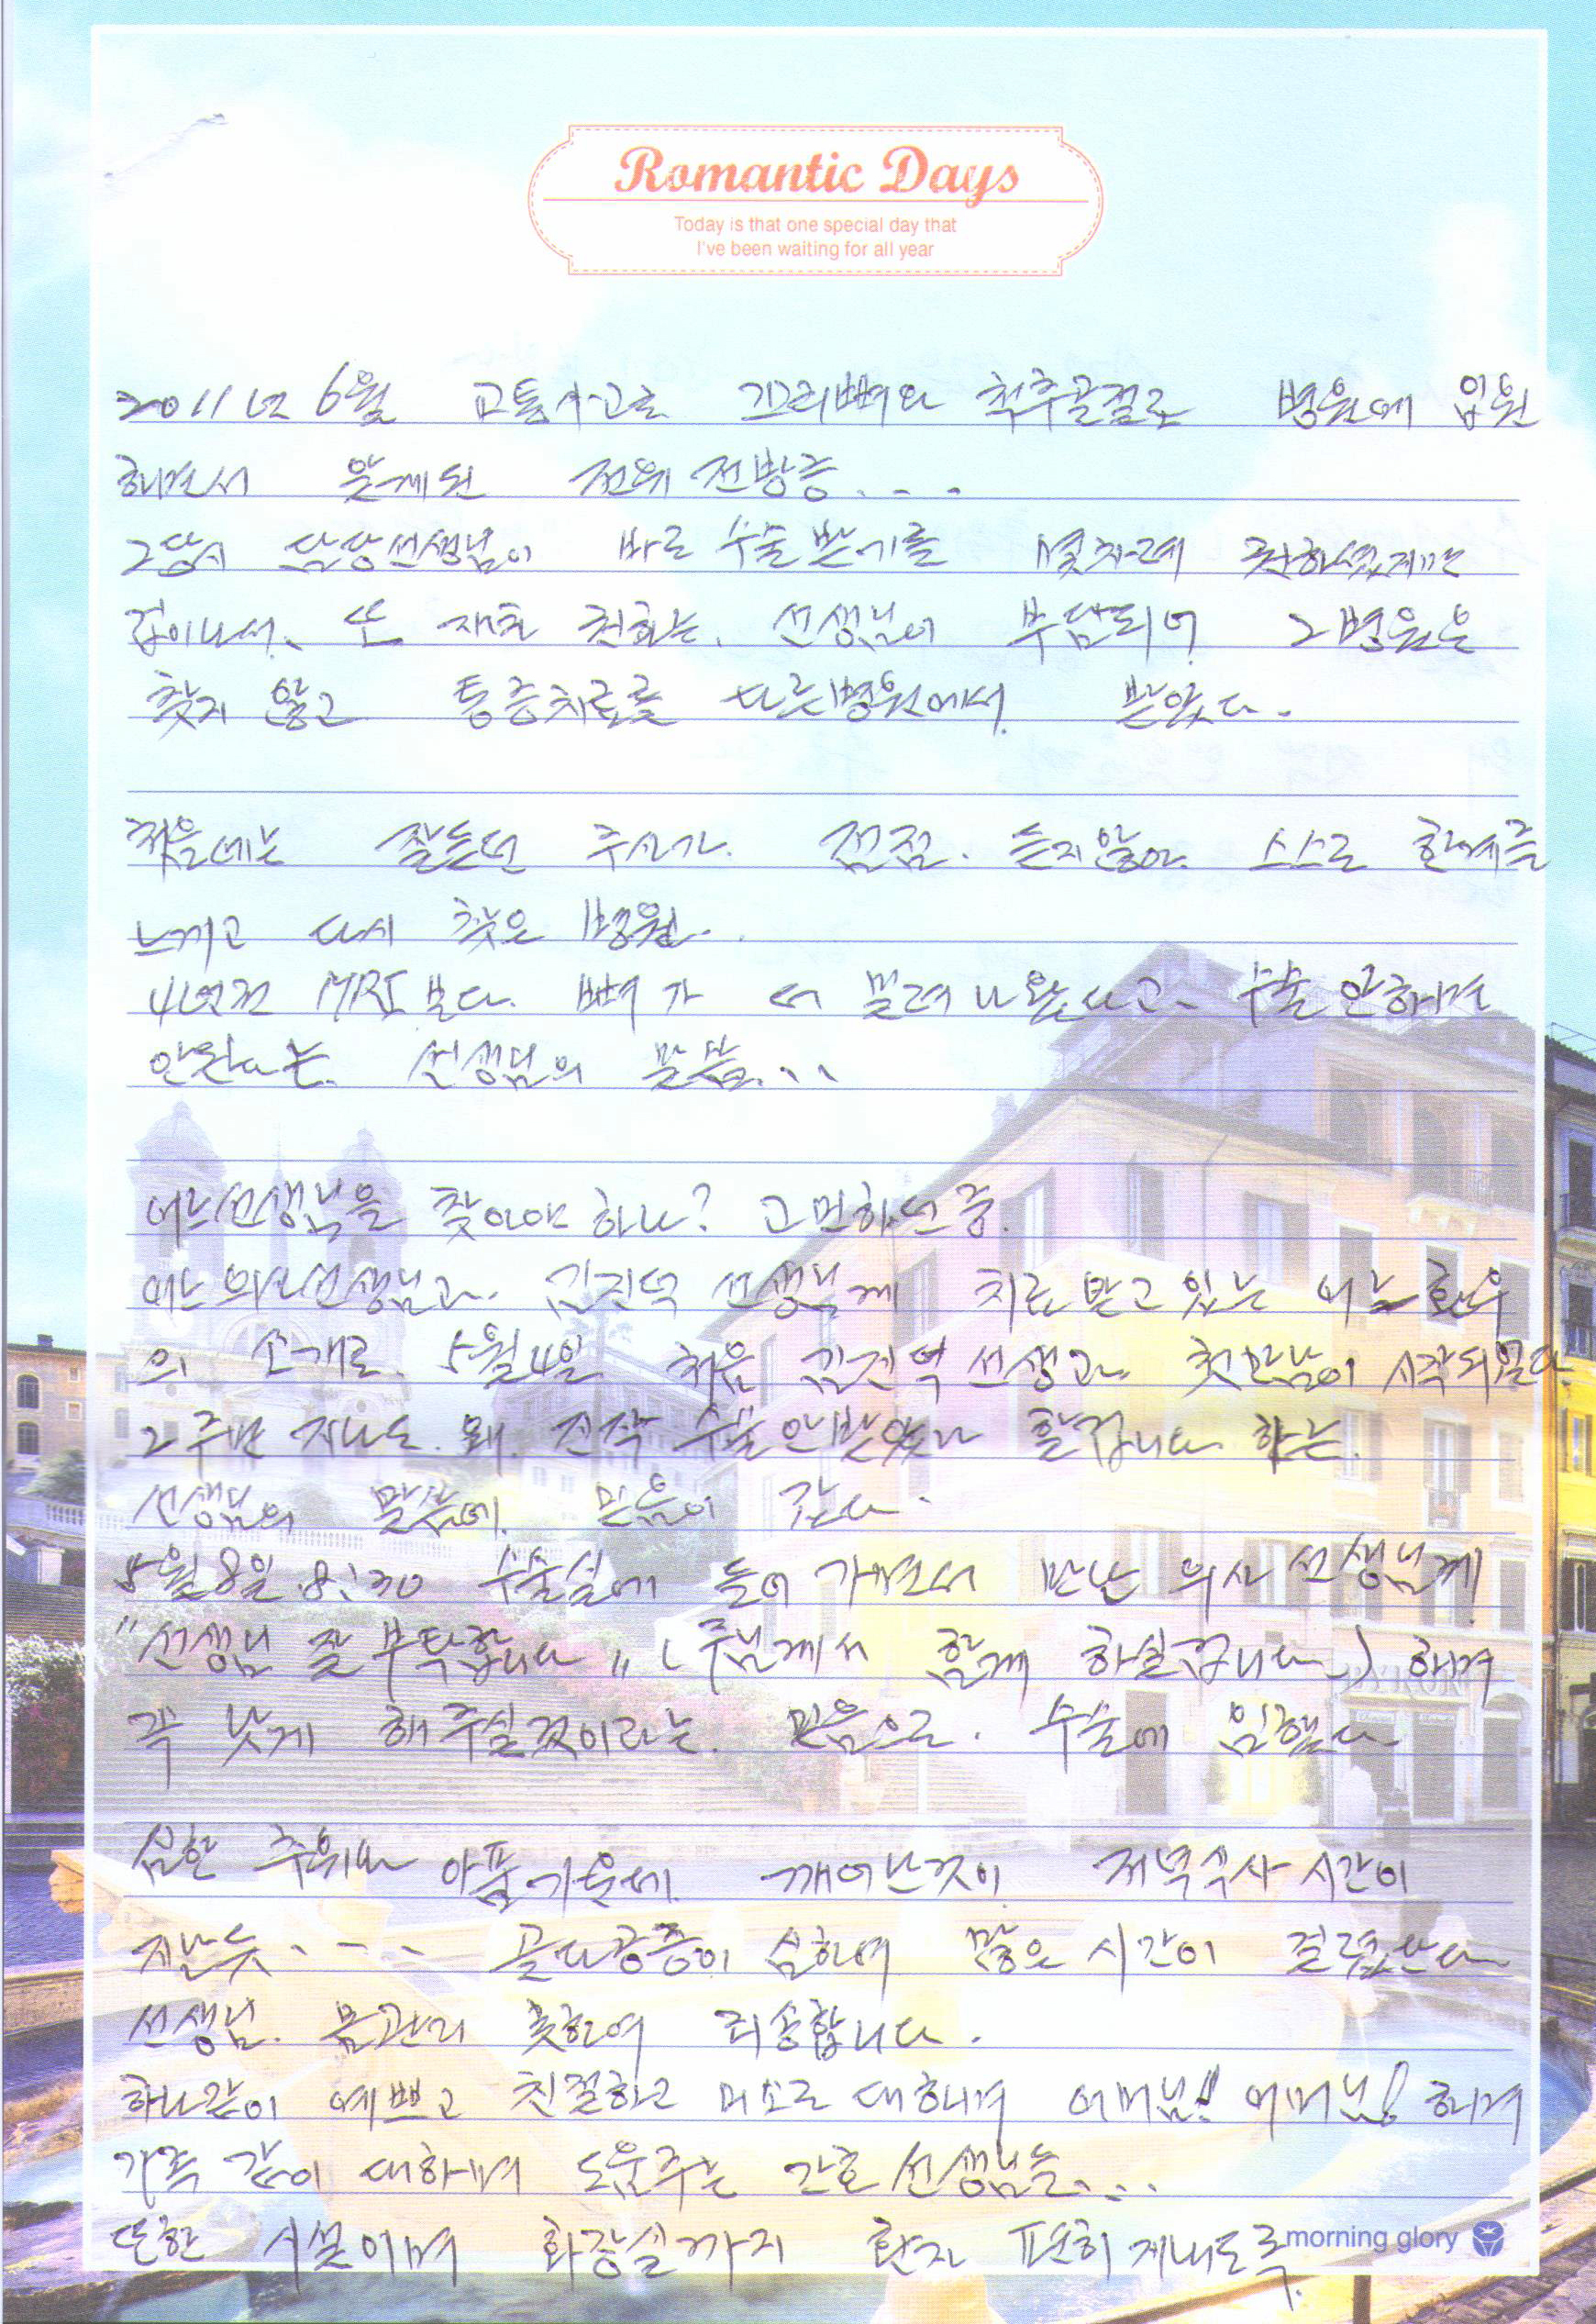 Romantic Days
Today is that one special day that
I've been waiting for all year
2011년 6월 교통사고로 꼬리뼈와 척추골절로 병원에 입원
하면서 알게된 전위 전방증...
그당시 담당선생님이 바로 수술 받기를 몇차례 권하셨지만
겁이나서, 또 재차 권하는, 선생님이 부담되어 그병원은
찾지 않고 통증치료를 다른병원에서 받았다.
처음에는 잘듣던 주사가. 점점. 듣지않아. 스스로 한계를
느끼고 다시 찾은 병원.
4년전 MRI 보다. 뼈가 더 밀려 나왔다고. 수술 안하면
안된다는. 선생님의 말씀...
어느선생님을 찾아야 하나? 고민하던중.
어느 의사선생님과. 김진덕 선생님께 치료 받고 있는 어느 환우
의 소개로. 5월4일 처음 김진덕 선생과. 첫만남이 시작되었다.
2주만 지나도. 왜. 진작 수술 안받았나 할겁니다 하는.
선생님의 말씀에. 믿음이 갔다.
5월8일 8:30 수술실에 들어 가면서 만난 의사 선생님께
"선생님 잘 부탁합니다" (주님께서 함께 하실겁니다.) 하며
꼭 낫게 해 주실것이라는. 믿음으로. 수술에 임했다
심한 추위와 아픔가운데. 깨어난것이 저녁식사 시간이
지난듯... 골다공증이 심하여 많은 시간이 걸렸단다
선생님. 몸관리 못하여 죄송합니다.
하나같이 예쁘고 친절하고 미소로 대하며 어머님!! 어머님! 하며
가족 같이 대하며 도움주는 간호 선생님들...
또한 시설이며 화장실까지 환자 편히 지내도록.
morning glory